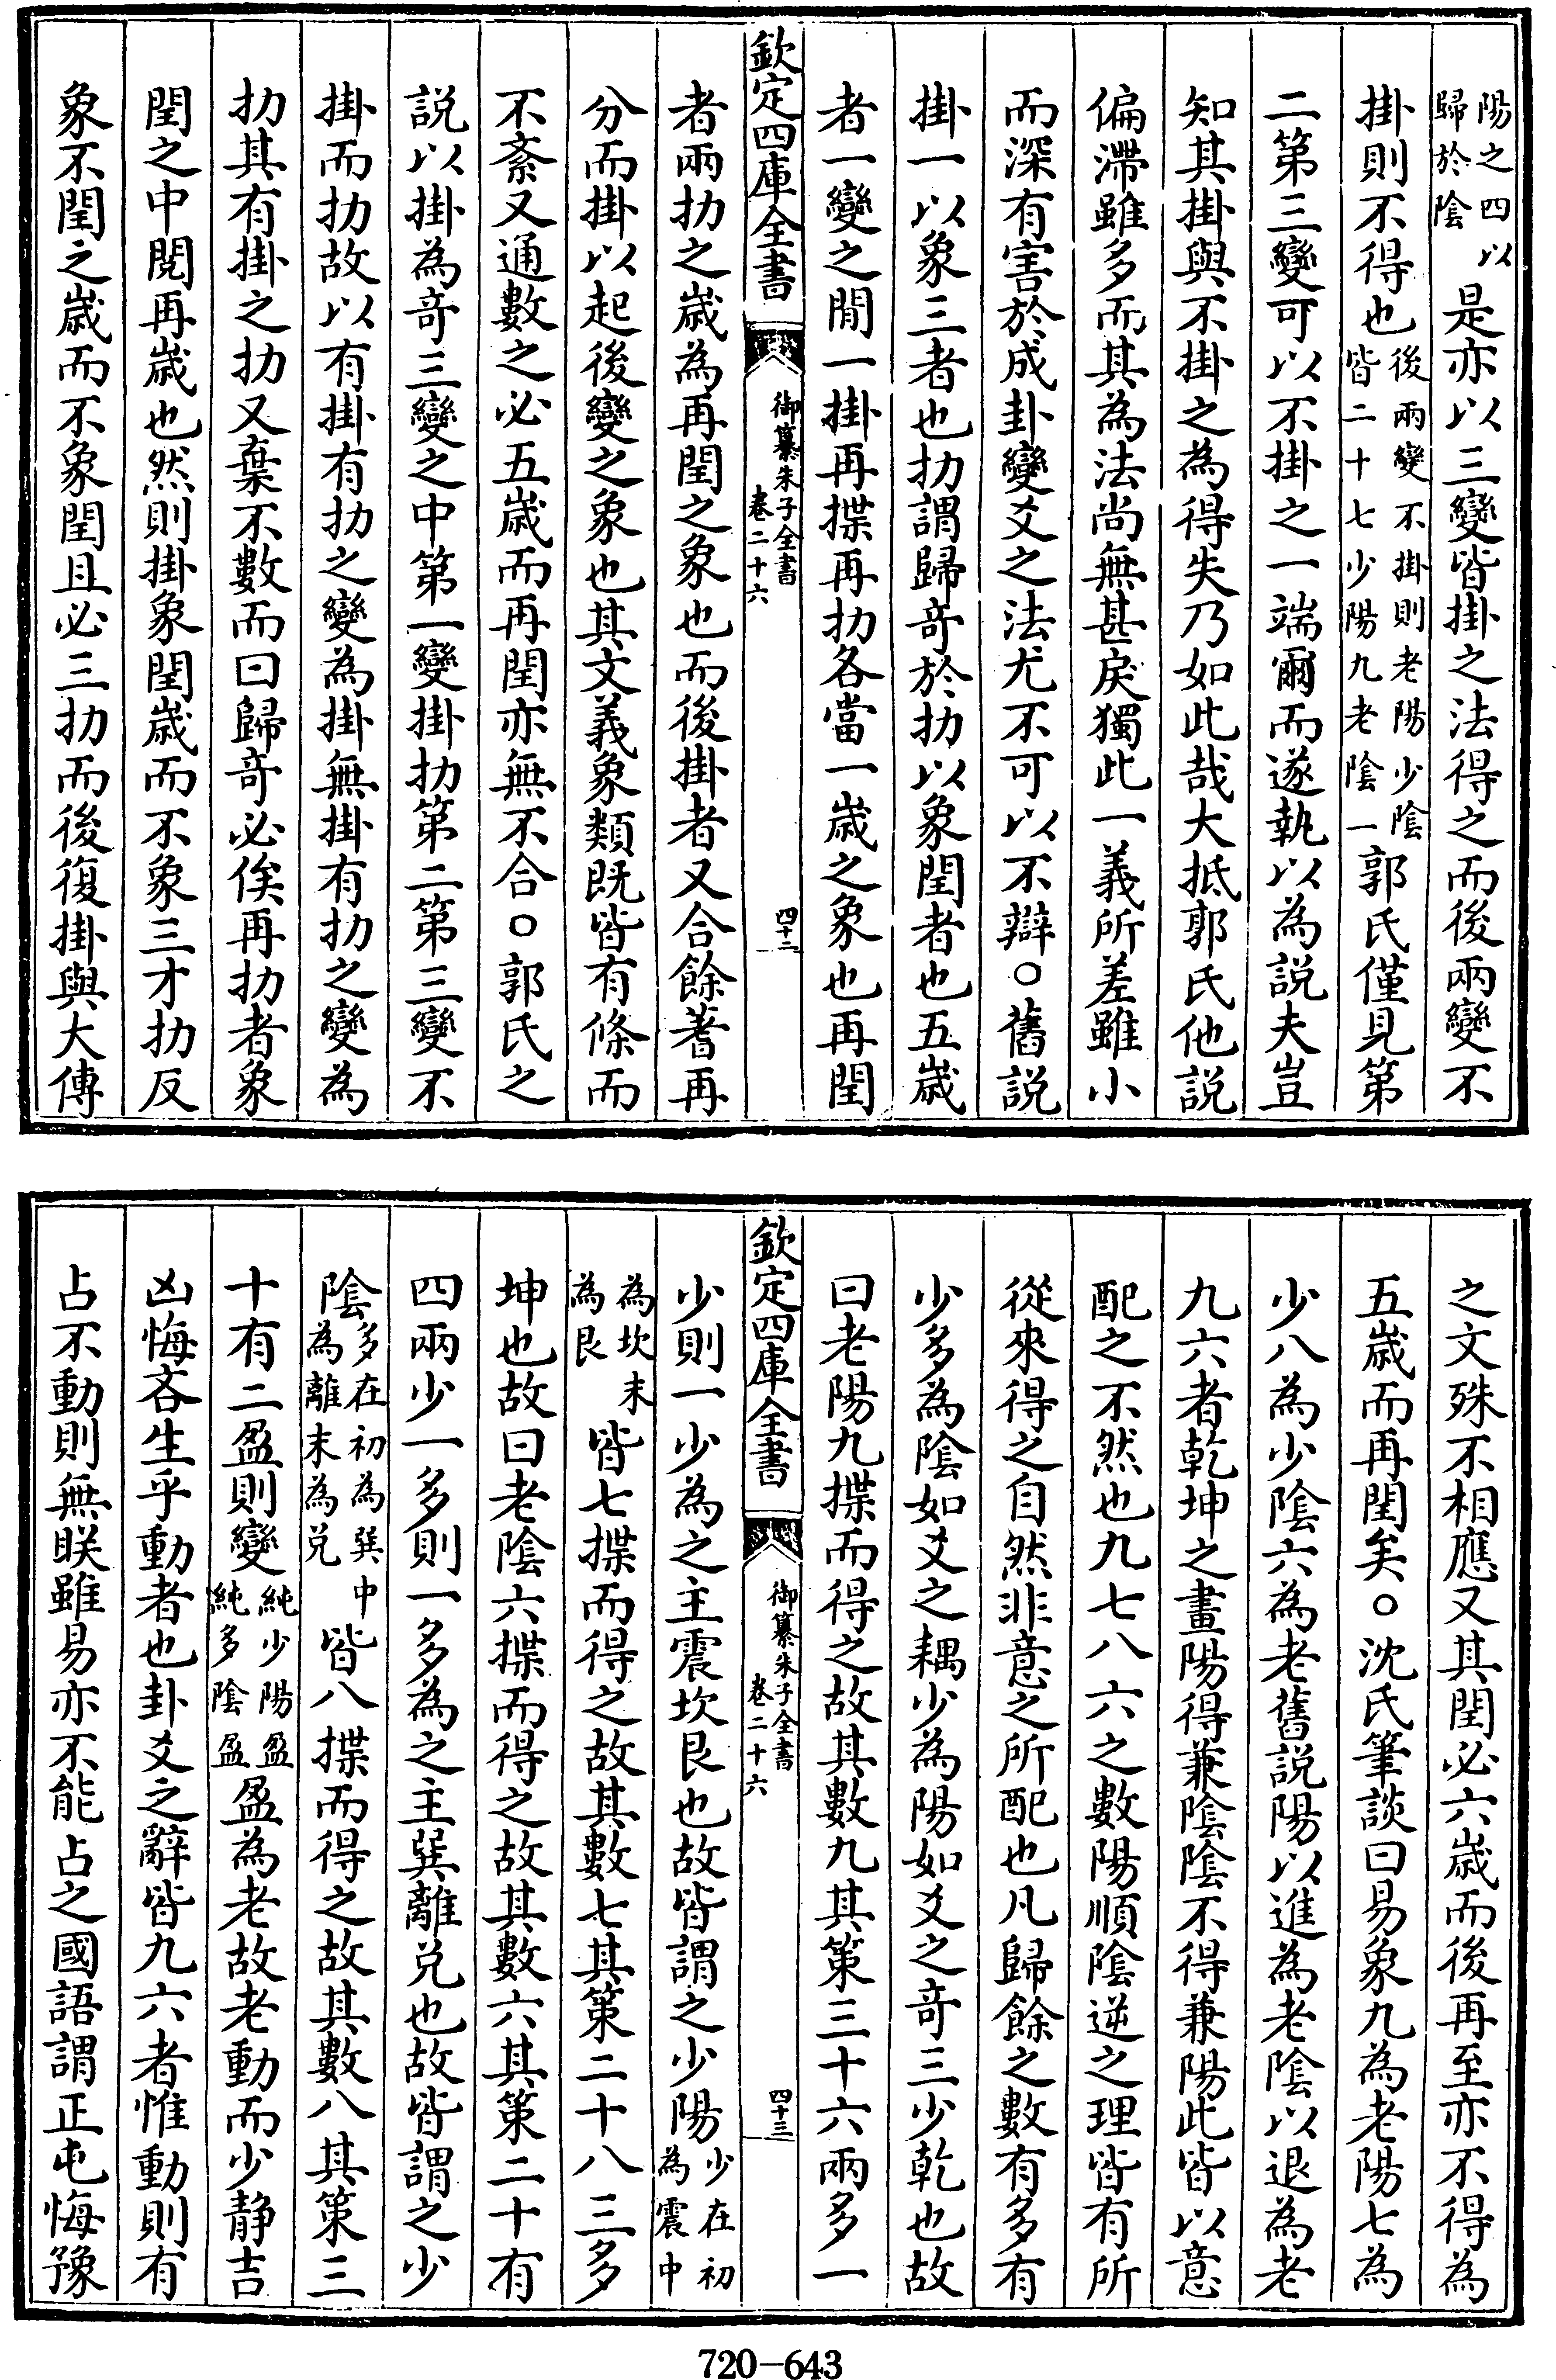 陽之四以歸於陰是亦以三變皆掛之法得之而後兩變不
掛則不得也後兩變不掛則老陽少陰皆二十七少陽九老陰一郭氏僅見第
二第三變可以不掛之一端爾而遂執以為説夫豈
知其掛與不掛之為得失乃如此哉大抵郭氏他説
偏滯雖多而其為法尚無甚戾獨此一義所差雖小
而深有害於成卦變爻之法尤不可以不辯○舊説
掛一以象三者也扐謂歸竒於扐以象閏者也五歲
者一變之間一掛再揲再扐各當一歲之象也再閏
欽定四庫全書 御纂朱子全書卷二十六 四十二
者兩扐之歲為再閏之象也而後掛者又合餘蓍再
分而掛以起後變之象也其文義象類既皆有條而
不紊又通數之必五歲而再閏亦無不合○郭氏之
説以掛為竒三變之中第一變掛扐第二第三變不
掛而扐故以有掛有扐之變為掛無掛有扐之變為
扐其有掛之扐又棄不數而曰歸竒必俟再扐者象
閏之中閱再歲也然則掛象閏歲而不象三才扐反
象不閏之歲而不象閏且必三扐而後復掛與大傳
之文殊不相應又其閏必六歲而後再至亦不得為
五歲而再閏矣○沈氏筆談曰易象九為老陽七為
少八為少陰六為老舊説陽以進為老陰以退為老
九六者乾坤之畫陽得兼陰陰不得兼陽此皆以意
配之不然也九七八六之數陽順陰逆之理皆有所
從來得之自然非意之所配也凡歸餘之數有多有
少多為陰如爻之耦少為陽如爻之竒三少乾也故
曰老陽九揲而得之故其數九其策三十六兩多一
欽定四庫全書 御纂朱子全書卷二十六 四十三
少則一少為之主震坎艮也故皆謂之少陽少在初為震中
為坎末為艮皆七揲而得之故其數七其策二十八三多
坤也故曰老陰六揲而得之故其數六其策二十有
四兩少一多則一多為之主巽離兑也故皆謂之少
陰多在初為巽中為離末為兑皆八揲而得之故其數八其策三
十有二盈則變純少陽盈純多陰盈盈為老故老動而少静吉
凶悔吝生乎動者也卦爻之辭皆九六者惟動則有
占不動則無眹雖易亦不能占之國語謂正屯悔豫
720-643